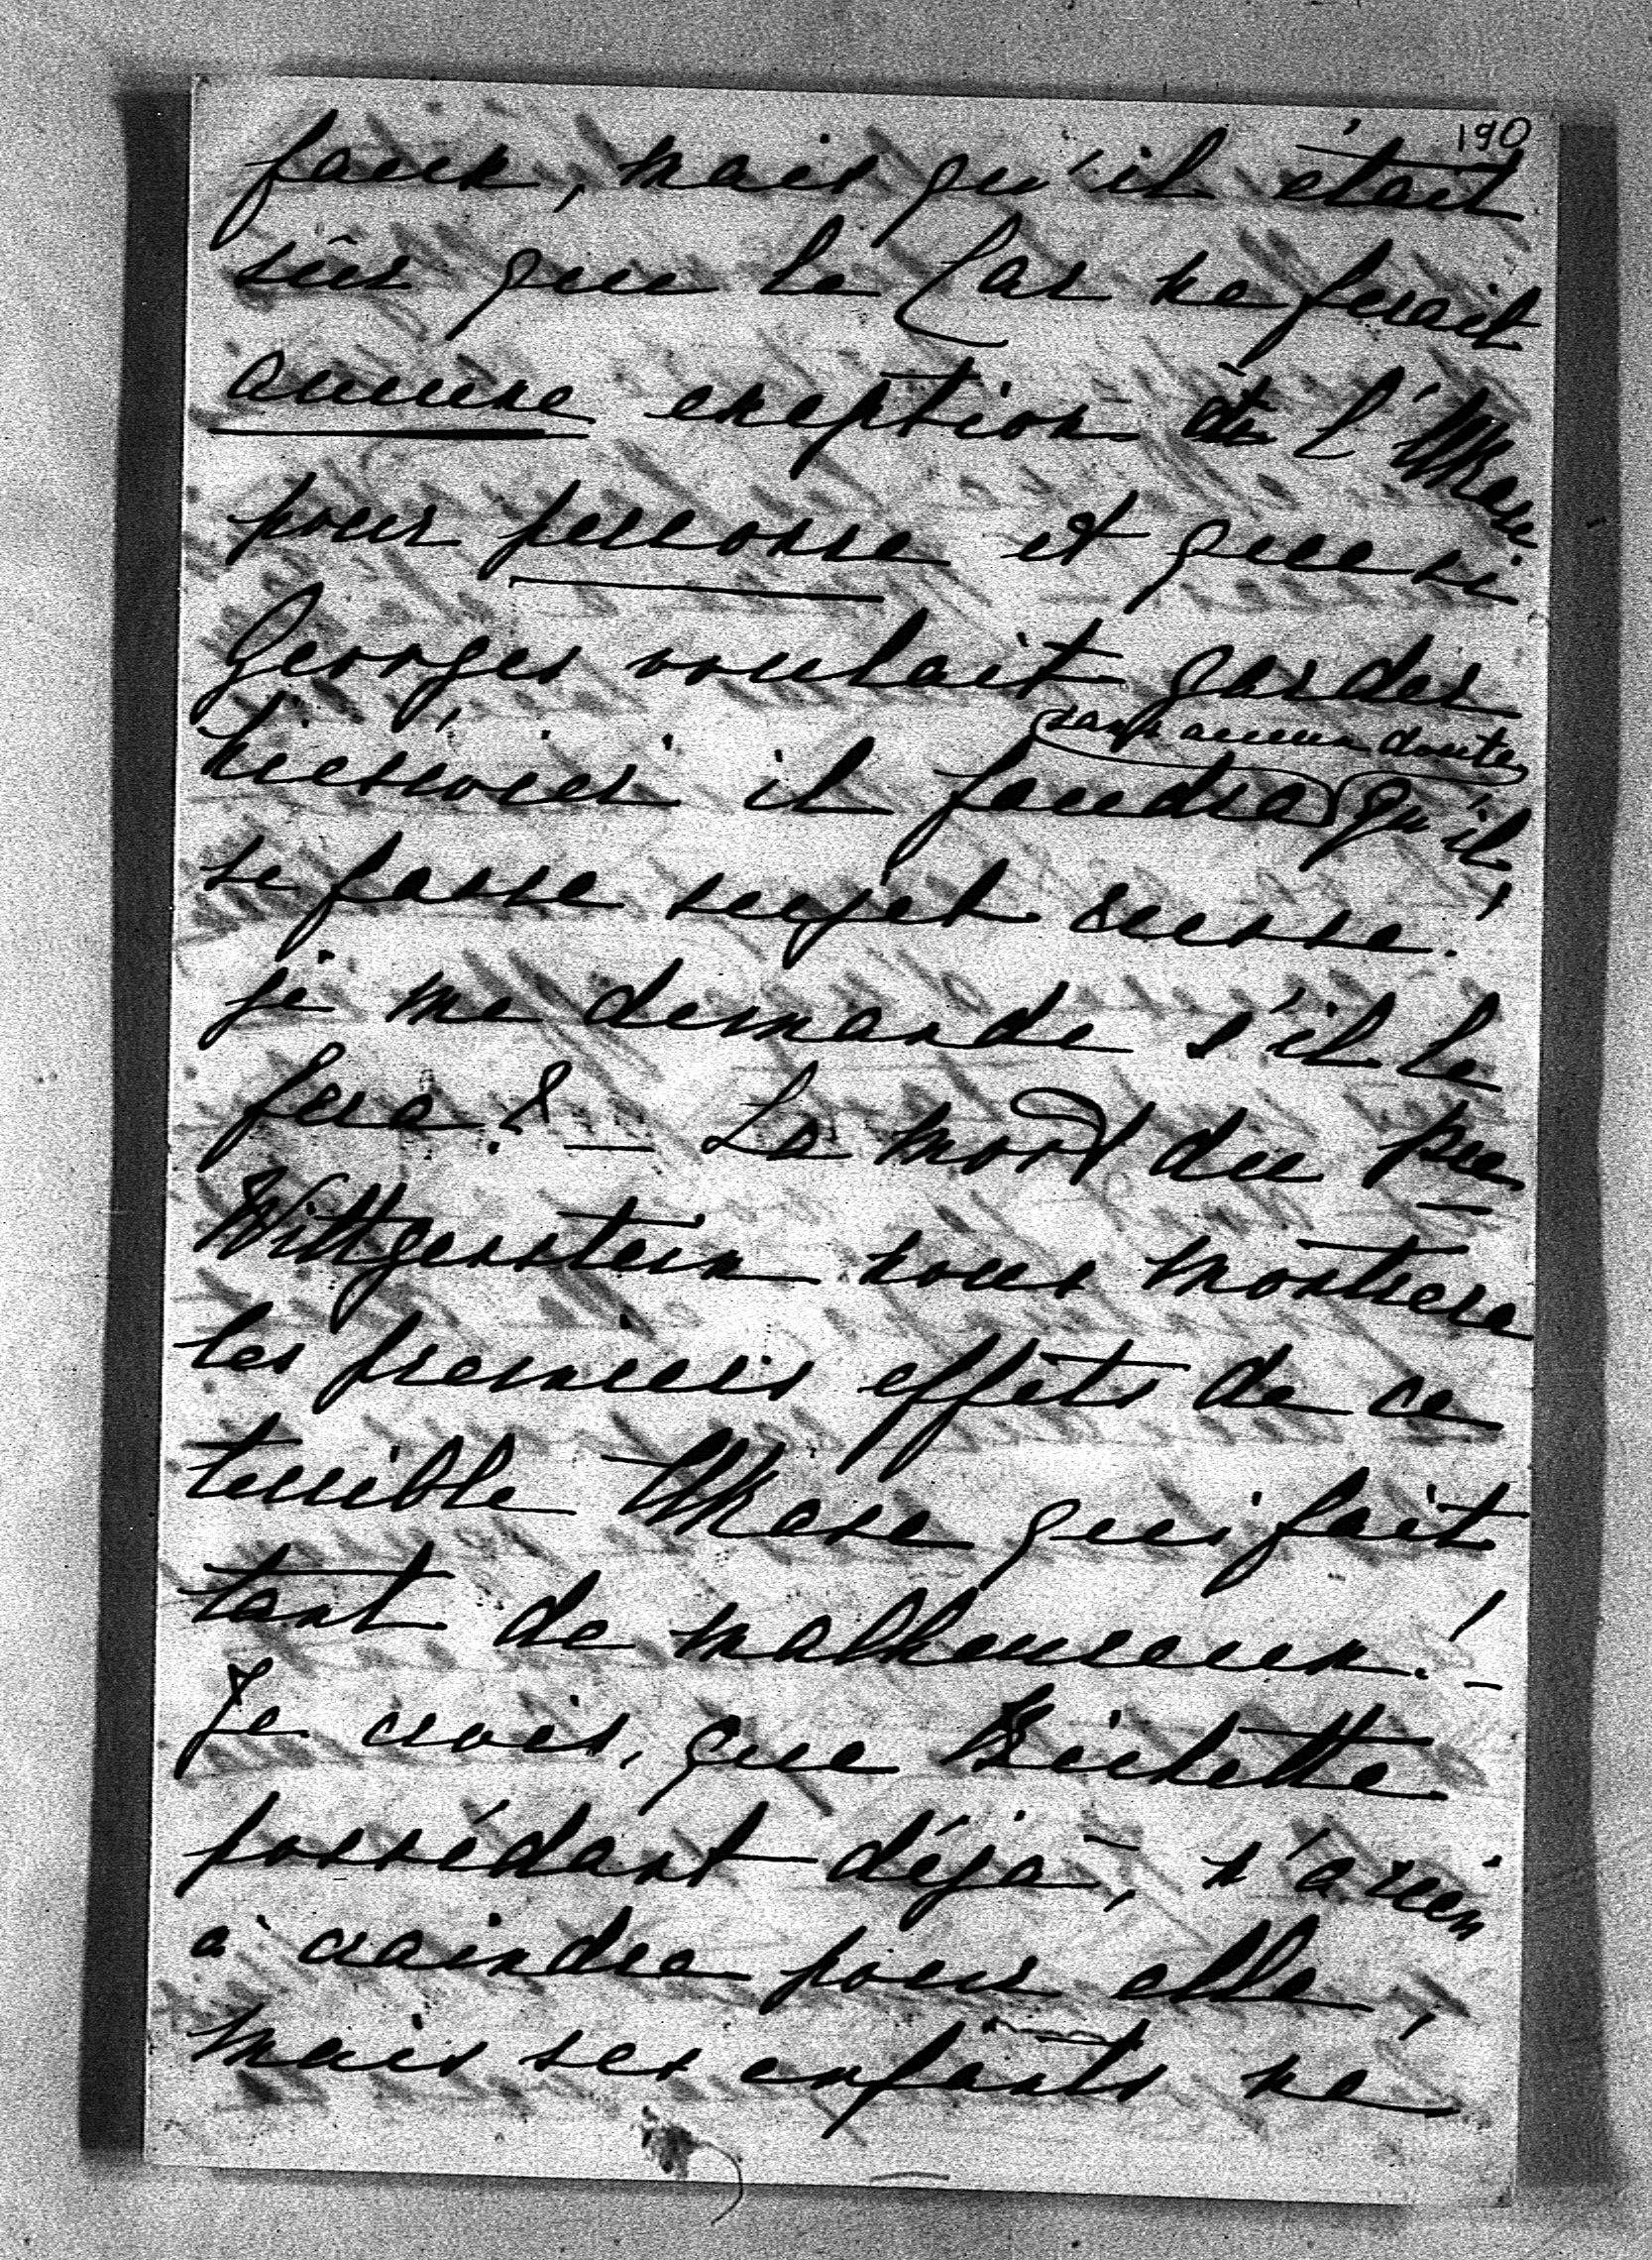 190
faux, mais qu'il était
sûr que le Czar ne ferait
aucune exeption à l'Ukase
pour personne et que si
Georges voulait garder
sans aucun doute
il faudra qu'il
se fasse sujet russe.
je me demande s'il le
fera? — La mort du Pce
Wittgenstein nous montrera
les premiers effets de ce
terrible Ukase qui fait
tant de malheureux! —
Je crois, que Bichette
possédant déjà, n'a rien
à craindre pour elle,
mais ses enfants ne